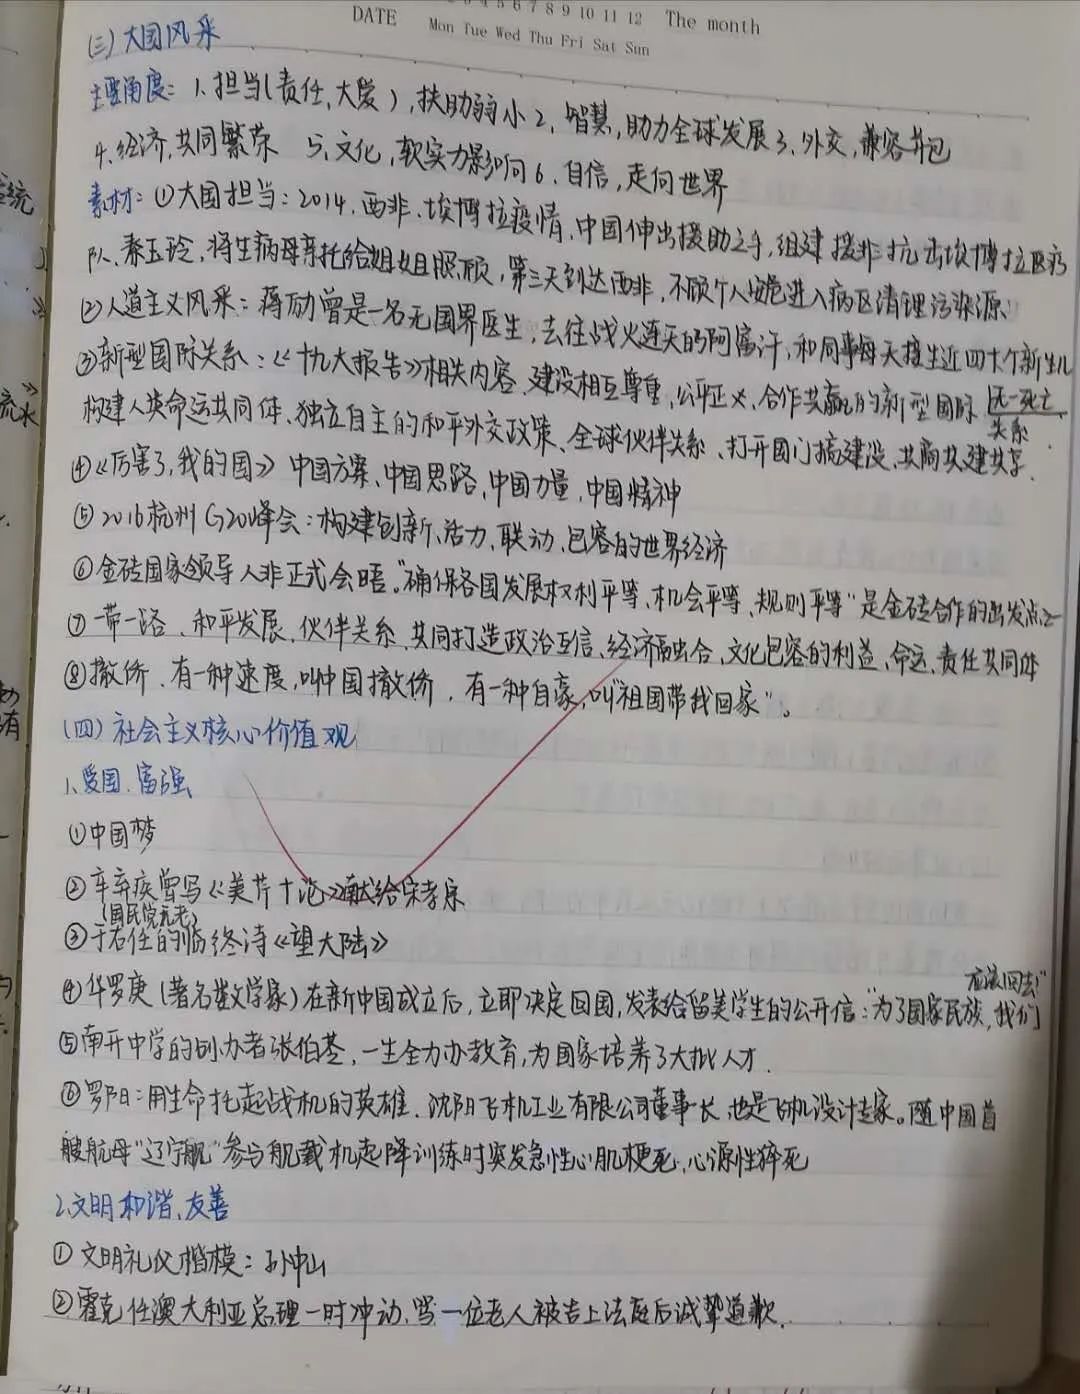 DATE 4 5 6 7 8 9 10 11 12 The month
Mon Tue Wed Thu Fri Sat Sun
(三)大国风采
主要角度：1、担当(责任,大爱),扶助弱小2、智慧,助力全球发展3、外交,兼容并包
4、经济,共同繁荣 5、文化,软实力影响6、自信,走向世界
素材：①大国担当：2014,西非、埃博拉疫情,中国伸出援助之手,组建援非抗击埃博拉医疗
队、秦玉玲,将生病母亲托给姐姐照顾,第三天到达西非,不顾个人安危进入病区清理污染源
②人道主义风采：蒋励曾是一名无国界医生,去往战火连天的阿富汗,和同事每天接生近四十个新生儿
③新型国际关系：《十九大报告》相关内容,建设相互尊重,公平正义,合作共赢的新型国际
关系
构建人类命运共同体、独立自主的和平外交政策、全球伙伴关系、打开国门搞建设、共商共建共享.
④《厉害了,我的国》中国方案、中国思路,中国力量,中国精神
⑤2016杭州G20峰会：构建创新、活力、联动、包容的世界经济
⑥金砖国家领导人非正式会晤。"确保各国发展权利平等、机会平等、规则平等"是金砖合作的出发点之一
⑦一带一路、和平发展、伙伴关系,共同打造政治互信、经济融合、文化包容的利益、命运、责任共同体
⑧撤侨,有一种速度,叫中国撤侨,有一种自豪,叫"祖国带我回家"。
(四)社会主义核心价值观
1、爱国、富强
①中国梦
②辛弃疾曾写《美芹十论》献给宋孝宗
(国民党元老)
③于右任的临终诗《望大陆》
应该回去"
④华罗庚(著名数学家)在新中国成立后,立即决定回国,发表给留美学生的公开信:"为了国家民族,我们
⑤南开中学的创办者张伯苓,一生全力办教育,为国家培养了大批人才.
⑥罗阳：用生命托起战机的英雄.沈阳飞机工业有限公司董事长,也是飞机设计专家。随中国首
艘航母"辽宁舰"参与舰载机起降训练时突发急性心肌梗死,心源性猝死
2、文明和谐、友善
①文明礼仪楷模：孙中山
②霍克任澳大利亚总理一时冲动,骂一位老人被告上法庭后诚挚道歉.